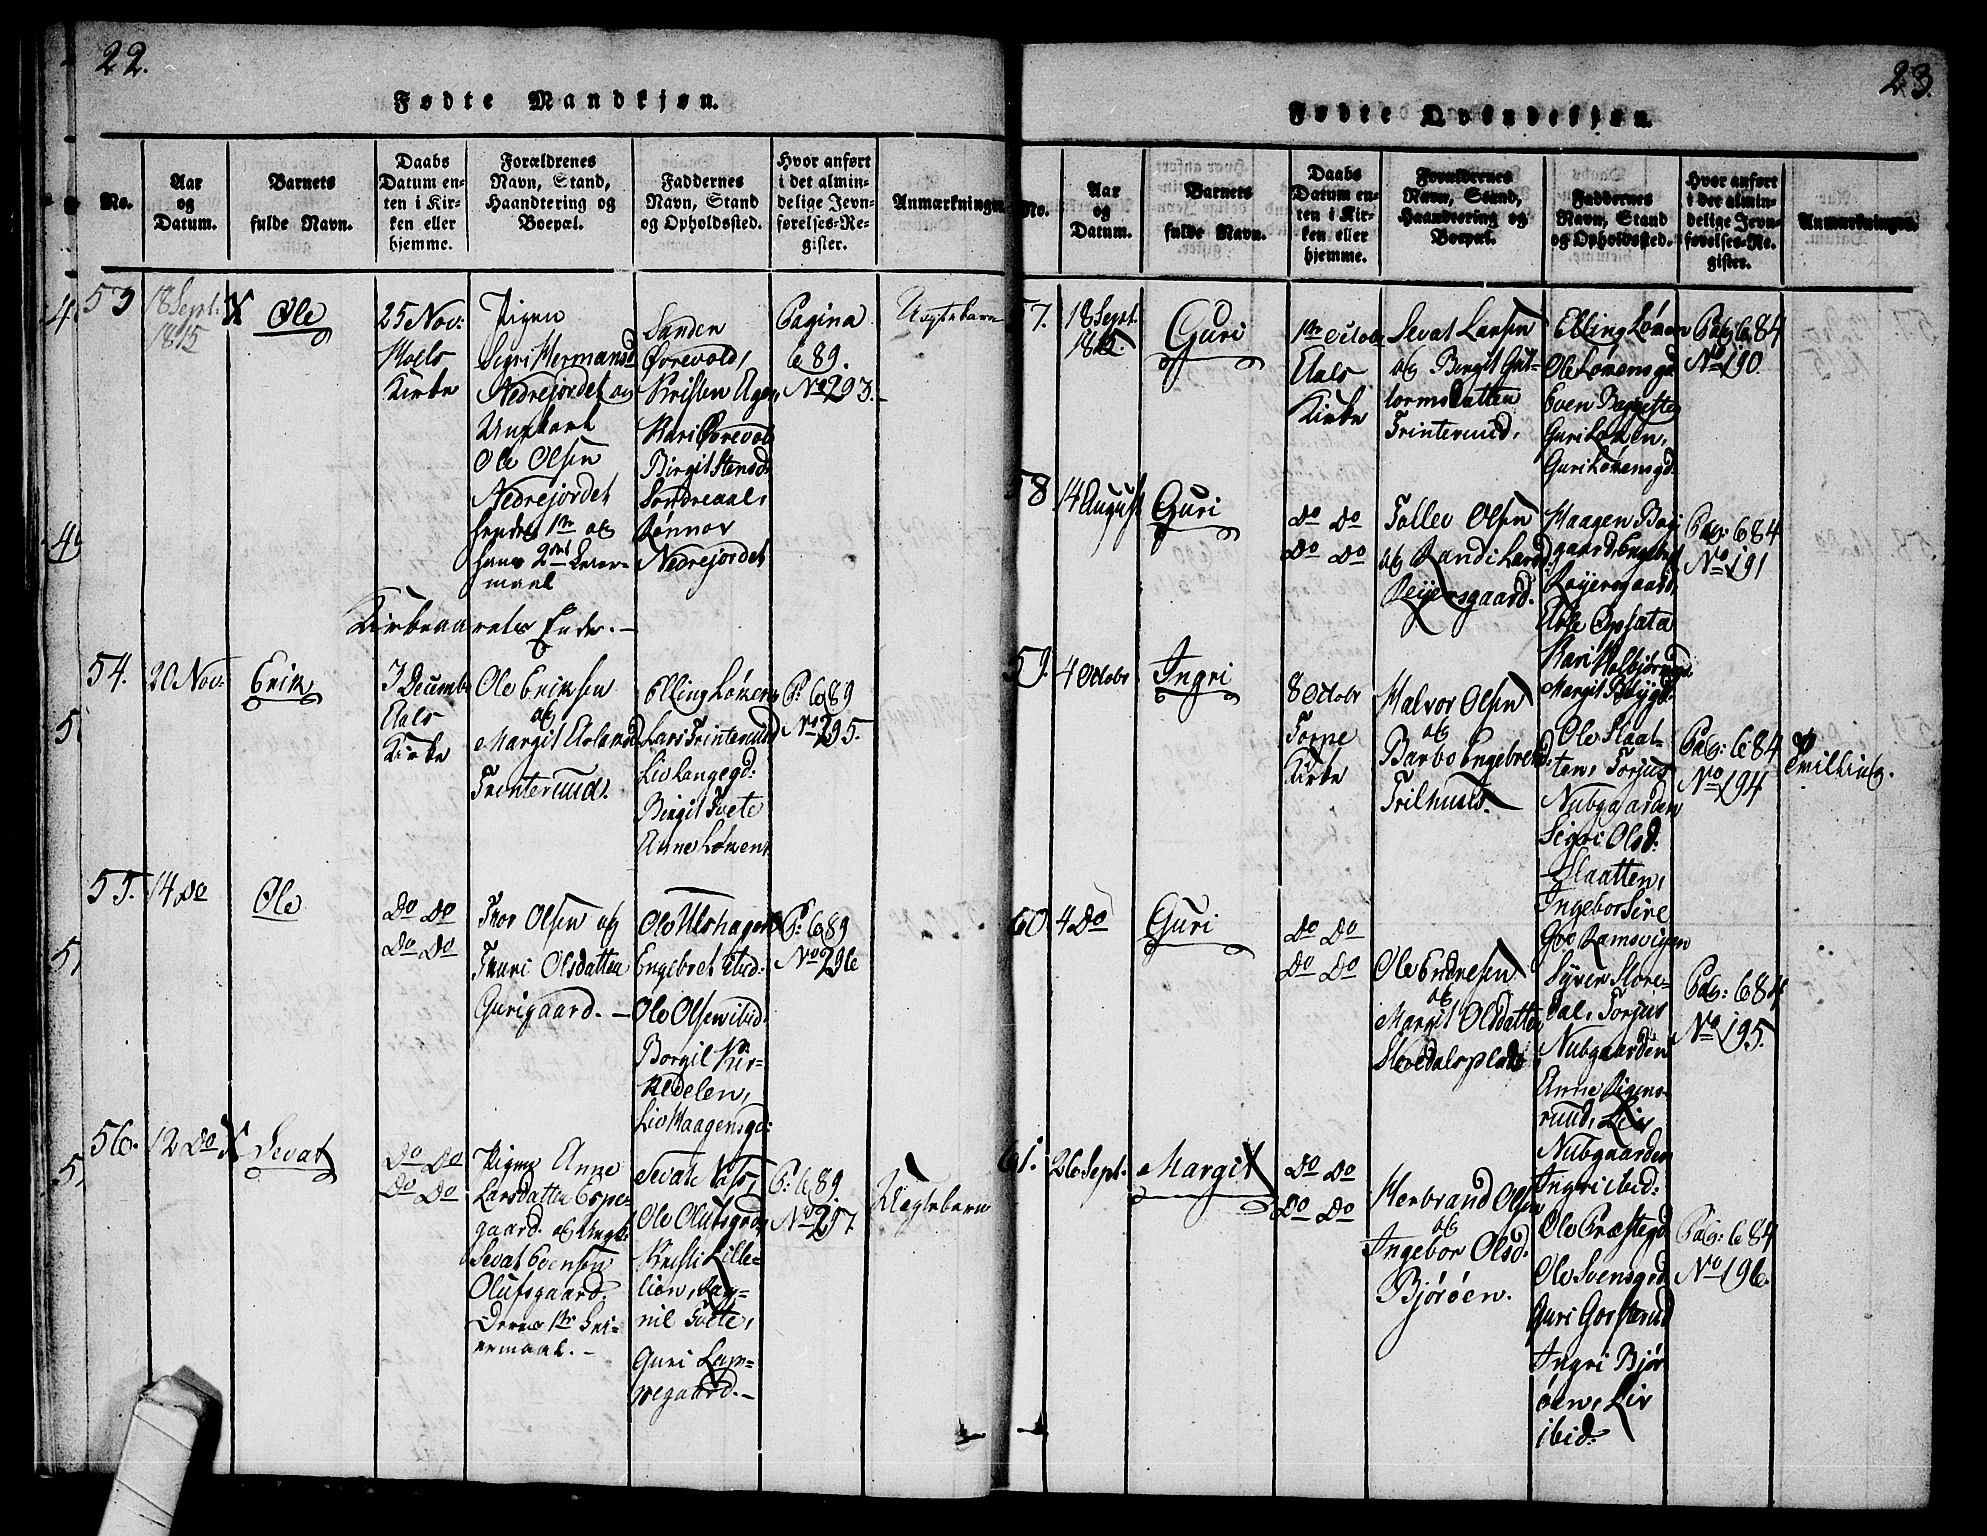 22.
Fødte Mandkjøn.
No.
Aar
og
Datum.
Barnets
fulde Navn.
Daabs
Datum en-
ten i Kir-
ken eller
hjemme.
Forældrenes
Navn, Stand,
Haandtering og
Boepæl.
Faddernes
Navn, Stand
og Opholdssted.
Hvor anført
i det almin-
delige Jevn-
førelses-Re-
gister.
Anmærkninger
53
18 Sept.
1815
X
Ole
25 Nov:
Hols
Kirke
Pigen
Sigri Hermansd
Nedrejordet og
Ungkarl
Ole Olsen
Nedrejordet
hendes 1te og
hans 2det Leier-
maal
Sanden
Ørevold,
Kristen
Kari Ørevol
Birgit Stensd
Sondreaal,
Rønnov
Nedrejordet
Pagina
689.
No 293.
Uægtebarn
Kirkeaarets Ende. —
54.
20 Nov:
Erik
3 Decemb
Aals
Kirke
Ole Eriksen
og
Margit
Trinterud.
Elling Løken
Lars Trinterud
Liv Langegd:
Birgit Tvete
Anne Løken
P: 689
No 295.
55.
14 Do
Ole
Do Do
Do Do
Thor Olsen og
Thuri Olsdatter
Gurigaard. —
Ole Ulshagen
Engebret
Ole Olsen ibid.
Borgil Kir-
kedelen,
Liv Haagensgd:
P: 689
No 296
56.
12 Do
X
Sevat
Do Do
Do Do
Pigen Anne
Larsdatter Espe-
gaard og Ungk:
Sevat Evensen
Olufsgaard.
Deres 1te Lei-
ermaal. —
Sevat
Ole Olufsgaard
Kristi Lille-
lien,
nil Tvete,
Guri
negaard. —
P: 689.
No 297.
Uægtebarn
23.
Fødte Qvindekjøn.
No.
Aar
og
Datum.
Barnets
fulde Navn.
Daabs
Datum en-
ten i Kir-
ken eller
hjemme.
Forældrenes
Navn, Stand,
Haandtering og
Boepæl.
Faddernes
Navn, Stand
og Opholdssted.
Hvor anført
i det almin-
delige Jevn-
førelses-Re-
gister.
Anmærkninger.
57.
18 Sept.
1815
Guri
1te Octob
Aals
Kirke
Sevat Larsen
og Birgit Gut-
tormsdatter
Trinterud,
Elling Løken
Ole Løkensgd
Even
Guri Løken,
Guri Løkensgd.
Pag: 684
No 190.
58
14 August
Guri
Do Do
Do Do
Tollev Olsen
og Randi Larsd:
Reijersgaard.
Haagen Bag
gaard, Engebret
Reijersgaard,
Able Opsata
Kari
Margit
Pag: 684
No 191
59.
4 Octobr
Ingri
8 Octobr
Torpe
Kirke
Halvor Olsen
og
Barbo Engebretsd:
Trilhuset.
Ole Slaat-
ten, Torjus
Nubgaarden
Sigri Olsd:
Slaatten,
Ingebor Sire
Gro Ramsvigen
Pag: 684
No 194
Tvilling.
60.
4 Do
Guri
Do Do
Do Do
Ole Endresen
og
Margit Olsdatter
Storedalsplads
Syver Store-
dal, Torjus
Nubgaarden
Anne
ruud, Liv
Nubgaarden
Ingri ibid:
Pag: 684
No 195.
61.
26 Sept.
Margit
Do Do
Do Do
Herbrand Olsen
og
Ingebor Olsd:
Bjørøen.
Ole Præstegd
Ole Svensgrd
Guri
Ingri Bjør
øen, Liv
ibid:
Pag: 684
No 196.